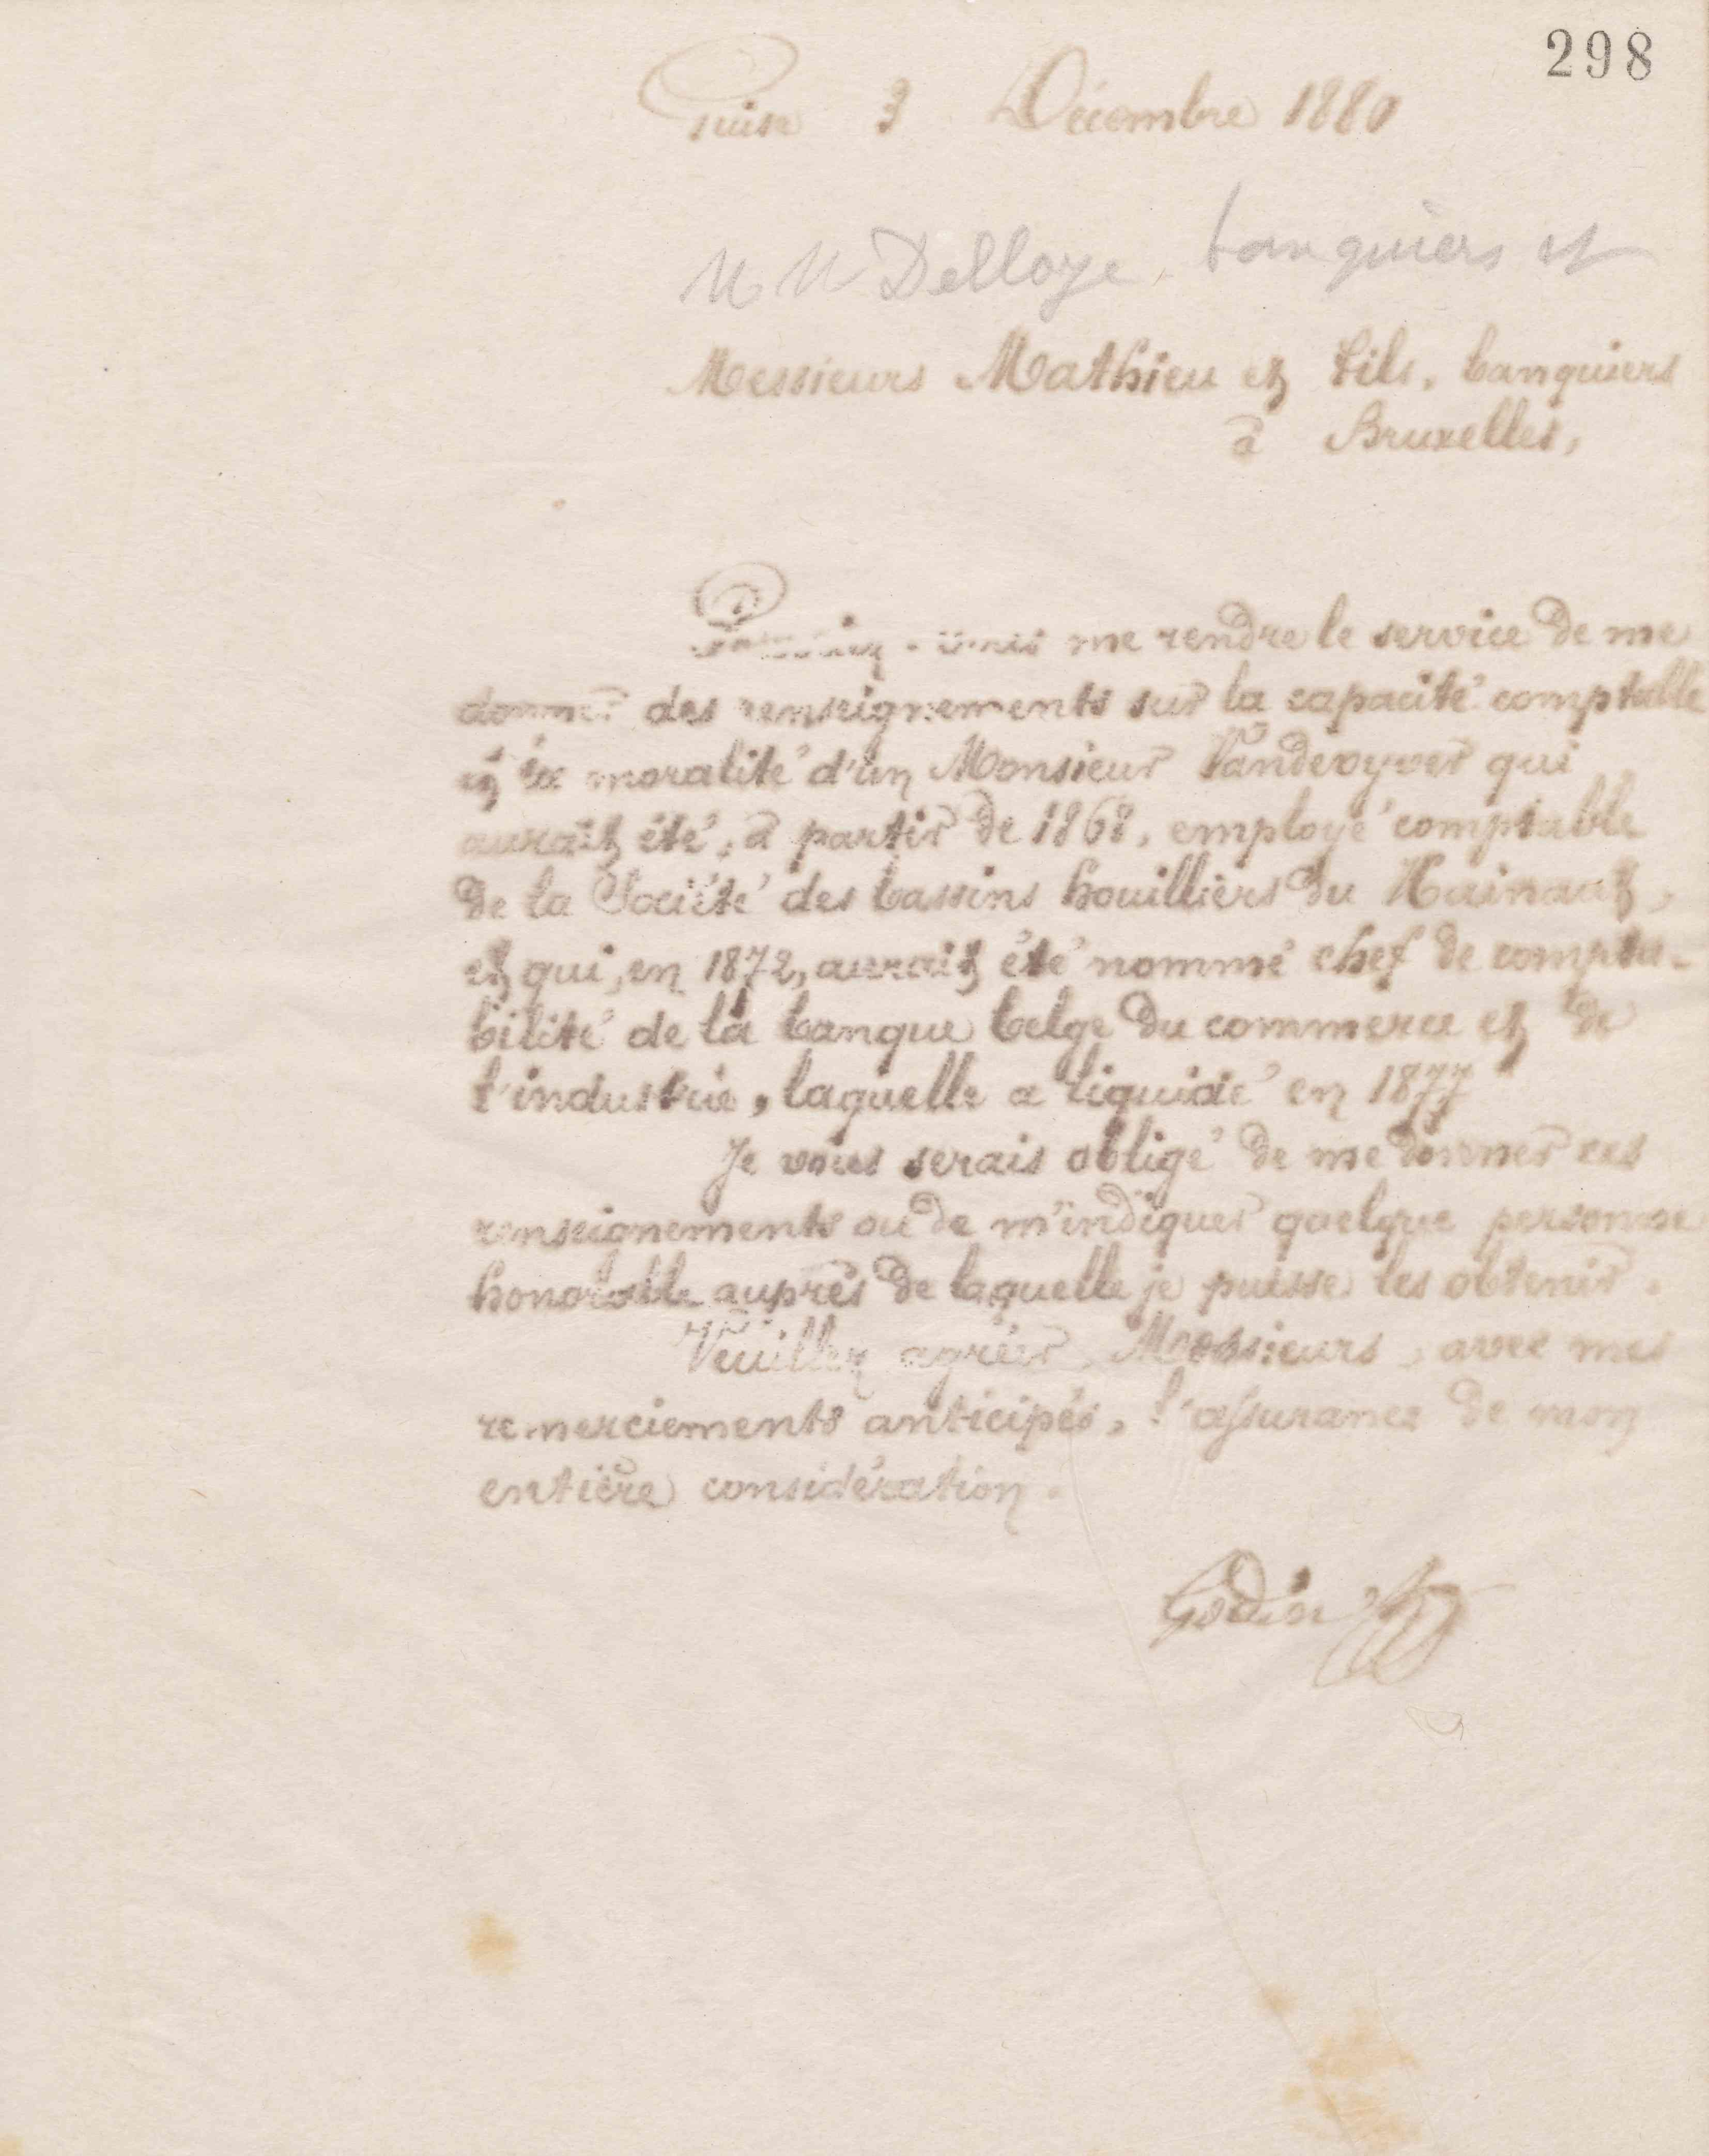 298
Guise 3 Décembre 1880
MM Delloye, banquiers et
Messieurs Mathieu et Fils, banquiers
à Bruxelles,
Pourriez-vous me rendre le service de me
donner des renseignements sur la capacité comptable
et la moralité d'un Monsieur Vandevyver qui
aurait été, à partir de 1868, employé comptable
de la Société des bassins houilliers du Hainaut,
et qui, en 1872, aurait été nommé chef de compta-
bilité de la banque belge du commerce et de
l'industrie, laquelle a liquidé en 1877
Je vous serais obligé de me donner ces
renseignements ou de m'indiquer quelque personne
honorable auprès de laquelle je puisse les obtenir.
Veuillez agréer, Messieurs, avec mes
remerciements anticipés, l'assurance de mon
entière considération.
Godin